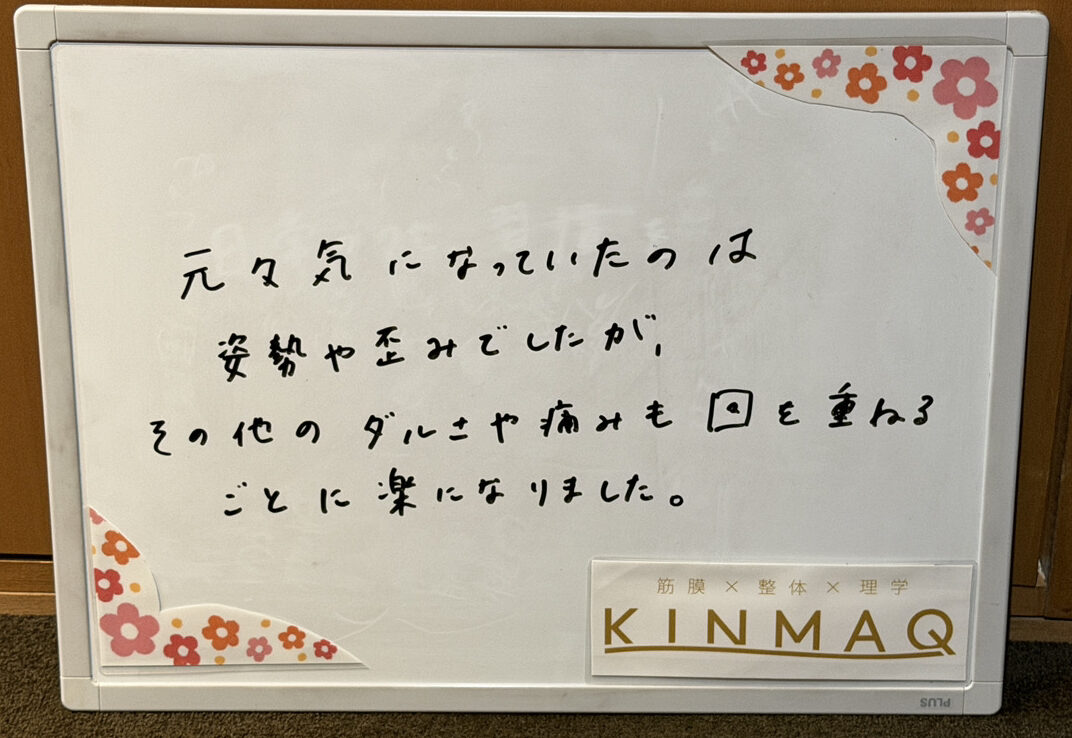 元々気になっていたのは
姿勢や歪みでしたが、
その他のダルさや痛みも回を重ねる
ごとに楽になりました。
筋膜×整体×理学
KINMAQ
PLUS